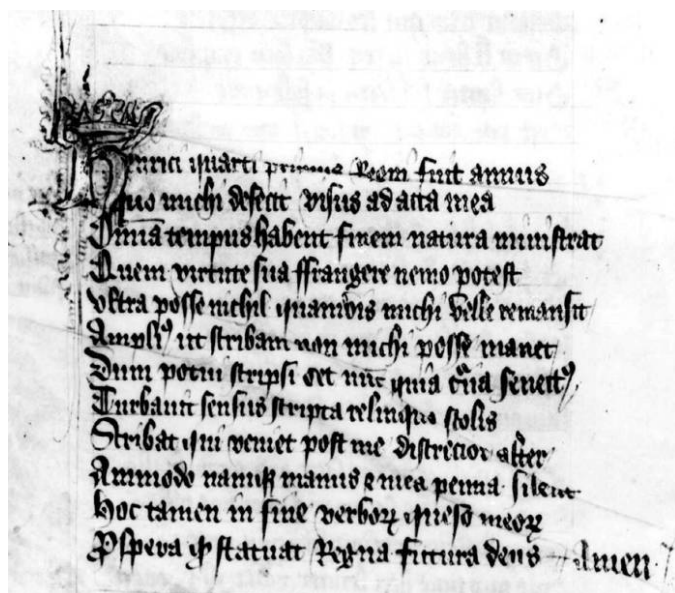 Henrici quarti primus Regni fuit annus
Quo michi defecit visus ad acta mea
Omnia tempus habent finem natura ministrat
Quem virtute sua ffrangere nemo potest
Vltra posse nichil quamvis michi velle remansit
Ampliꝰ ut scribam non michi posse manet
Dum potui scripsi set nūc quia cūa senectꝰ
Turbauit sensus scripta relinquo scolis
Scribat qui veniet post me discrecior alter
Ammodo namqꝫ manus & mea penna silent
Hoc tamen in fine verboꝝ queso meoꝝ
Ꝓspera qͥ statuat Regna futura deus Amen